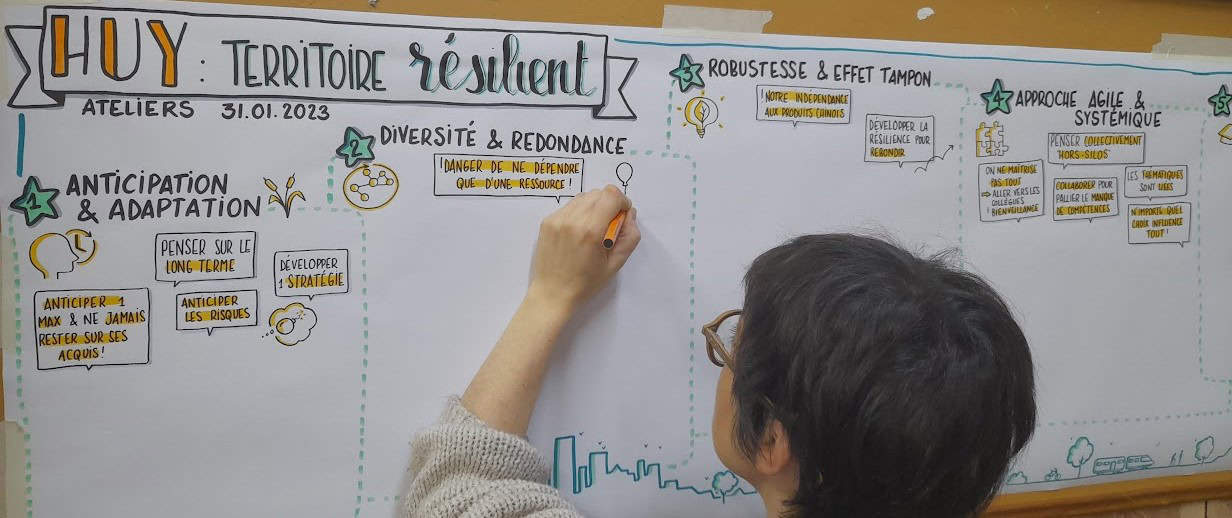 HUY : TERRITOIRE résilient
ATELIERS 31.01.2023
1 ANTICIPATION
& ADAPTATION
PENSER SUR LE
LONG TERME
DÉVELOPPER
1 STRATÉGIE
ANTICIPER 1
MAX & NE JAMAIS
RESTER SUR SES
ACQUIS!
ANTICIPER
LES RISQUES
2 DIVERSITÉ & REDONDANCE
! DANGER DE NE DÉPENDRE
QUE D'UNE RESSOURCE !
3 ROBUSTESSE & EFFET TAMPON
! NOTRE INDÉPENDANCE
AUX PRODUITS CHINOIS
DÉVELOPPER LA
RÉSILIENCE POUR
REBONDIR
4 APPROCHE AGILE &
SYSTÉMIQUE
PENSER COLLECTIVEMENT
"HORS-SILOS"
ON NE MAÎTRISE
PAS TOUT
→ ALLER VERS LES
COLLÈGUES
! BIENVEILLANCE
COLLABORER POUR
PALLIER LE MANQUE
DE COMPÉTENCES
LES THÉMATIQUES
SONT LIÉES
N'IMPORTE QUEL
CHOIX INFLUENCE
TOUT !